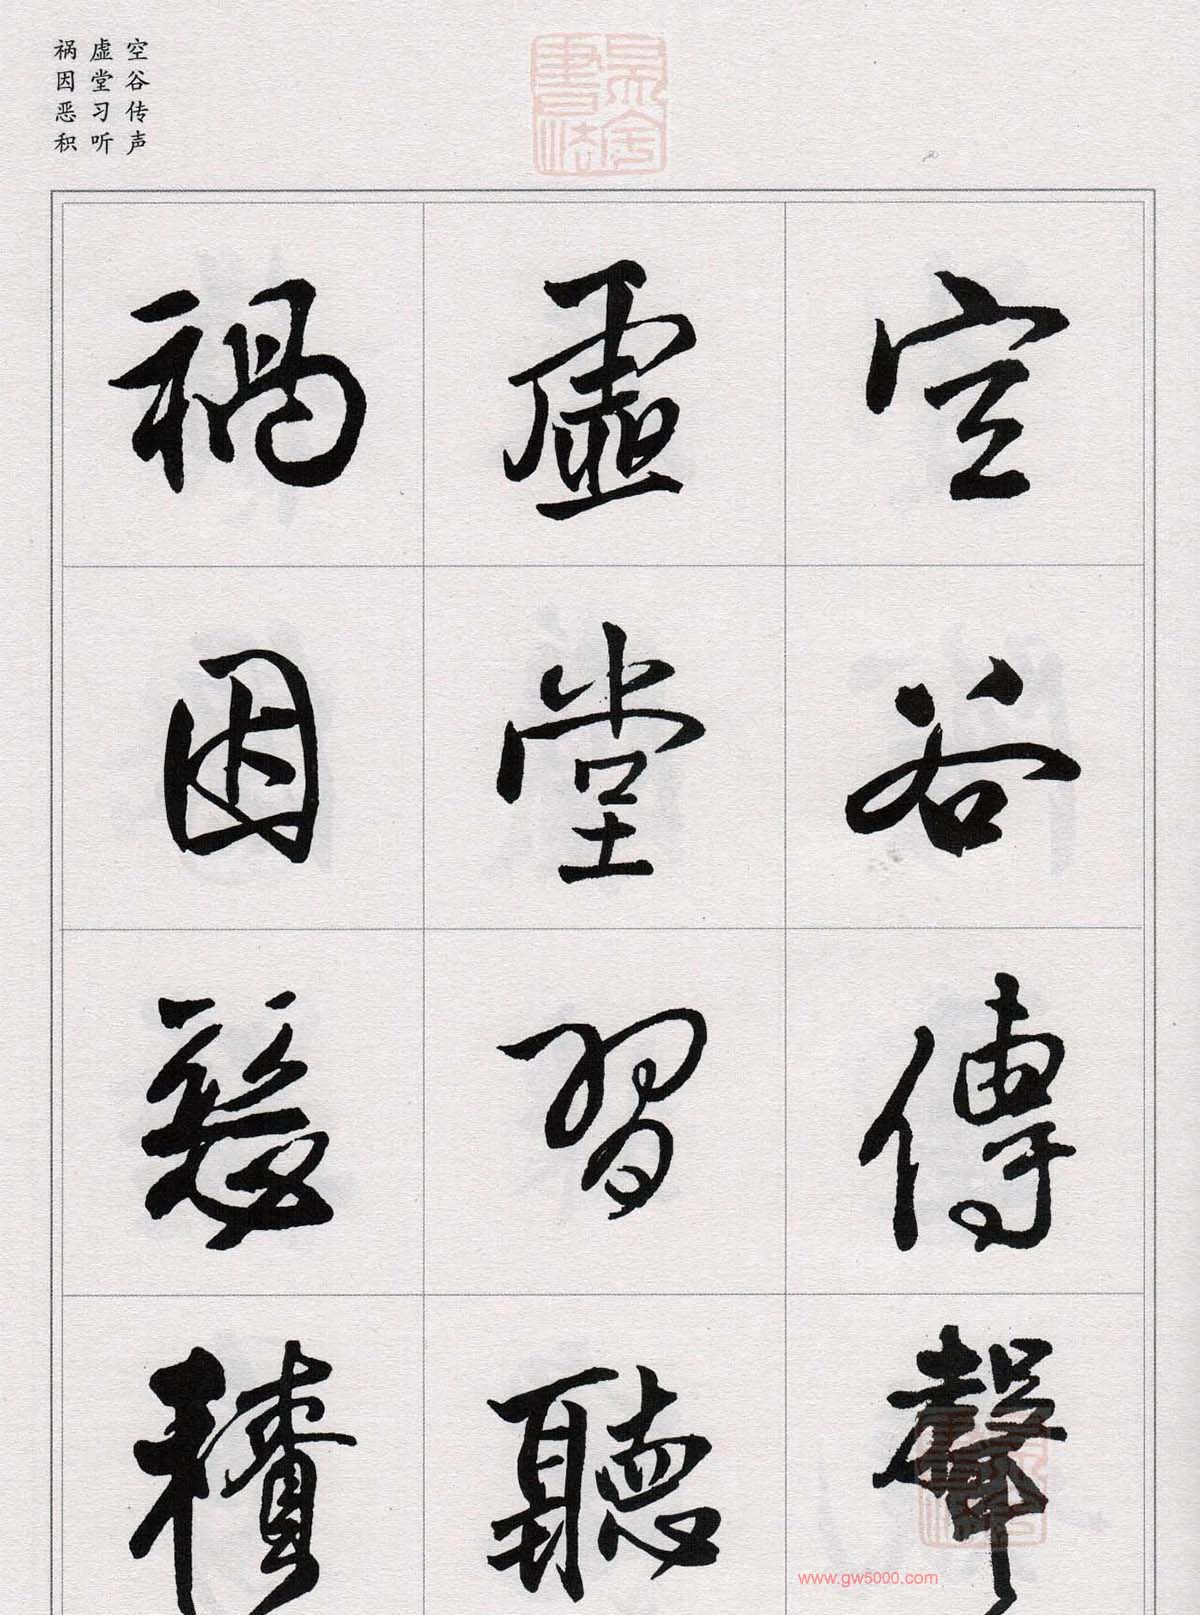 空谷传声
虚堂习听
祸因恶积
空谷傳聲
虛堂習聽
禍因惡積
www.gw5000.com